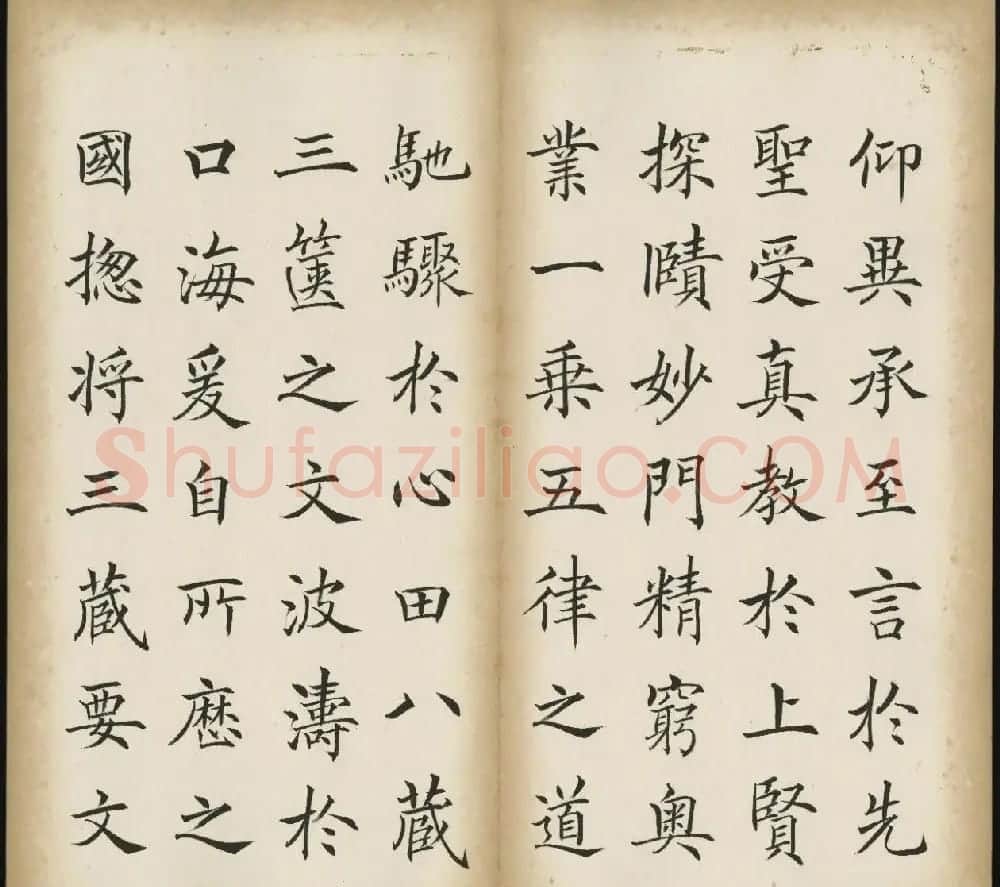 仰異承至言於先
聖受真教於上賢
探賾妙門精窮奧
業一乗五律之道
馳驟於心田八蔵
三篋之文波濤於
口海爰自所歷之
國揔将三蔵要文
Shufaziliao.COM